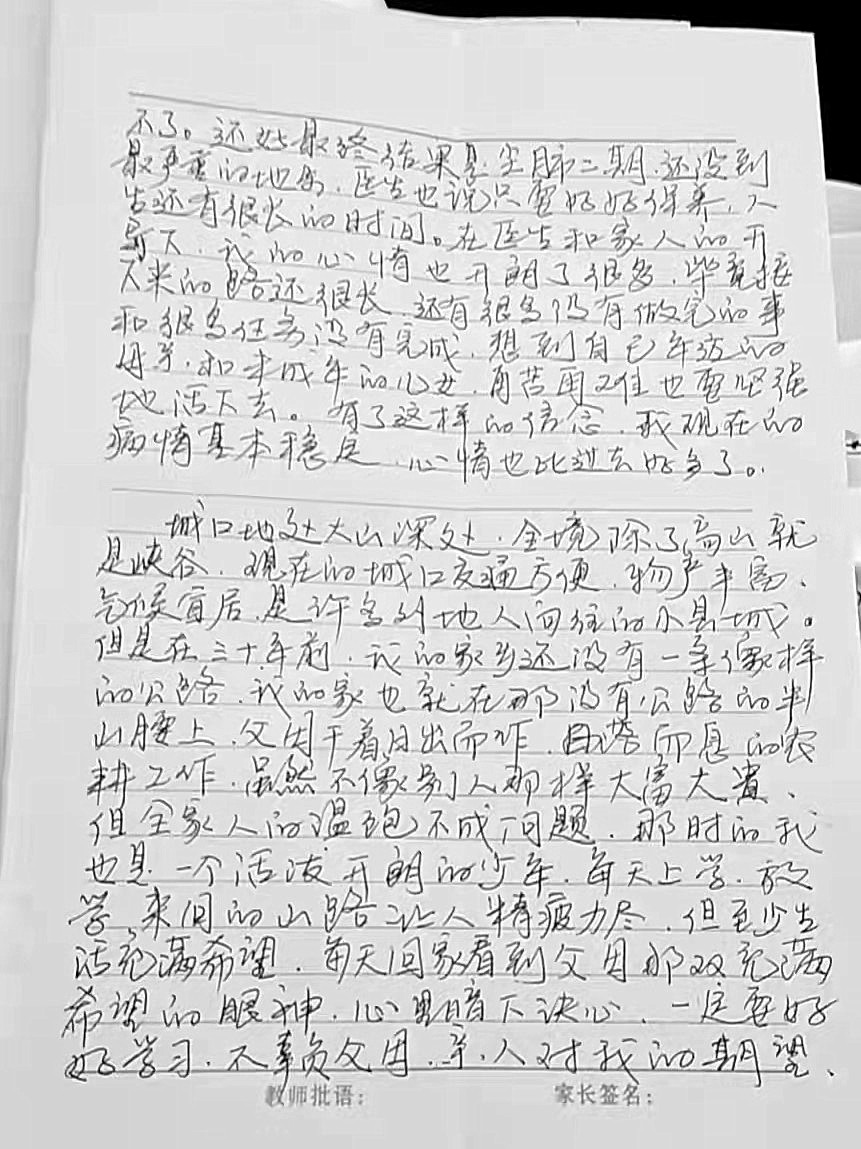 不了。还好最终结果是尘肺二期.还没到
最严重的地步.医生也说只要好好保养.人
生还有很长的时间。在医生和家人的开
导下.我的心情也开朗了很多.毕竟接
下来的路还很长.还有很多没有做完的事
和很多任务没有完成.想到自己年迈的
母亲.和未成年的儿女.再苦再难也要坚强
地活下去。有了这样的信念.我现在的
病情基本稳定.心情也比过去好多了。
城口地处大山深处.全境除了高山就
是峡谷.现在的城口交通方便.物产丰富、
气候宜居.是许多外地人向往的小县城。
但是在三十年前.我的家乡还没有一条像样
的公路.我的家也就在那没有公路的半
山腰上.父母干着日出而作.日落而息的农
耕工作.虽然不像别人那样大富大贵、
但全家人的温饱不成问题.那时的我
也是一个活泼开朗的少年.每天上学.放
学,来回的山路让人精疲力尽.但至少生
活充满希望.每天回家看到父母那双充满
希望的眼神.心里暗下决心.一定要好
好学习.不辜负父母.亲人对我的期望、
教师批语: 家长签名: